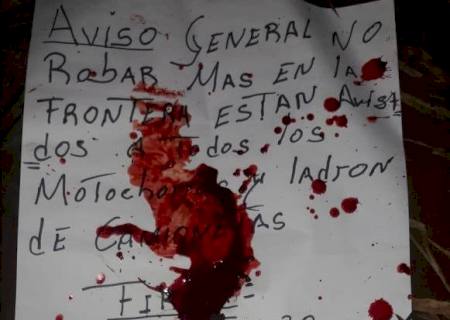 AVISO GENERAL NO
RobAR MAS EN la
FRONTERA ESTAN AVISA
dos A Todos los
y ladRON
dE CAMIONETAS